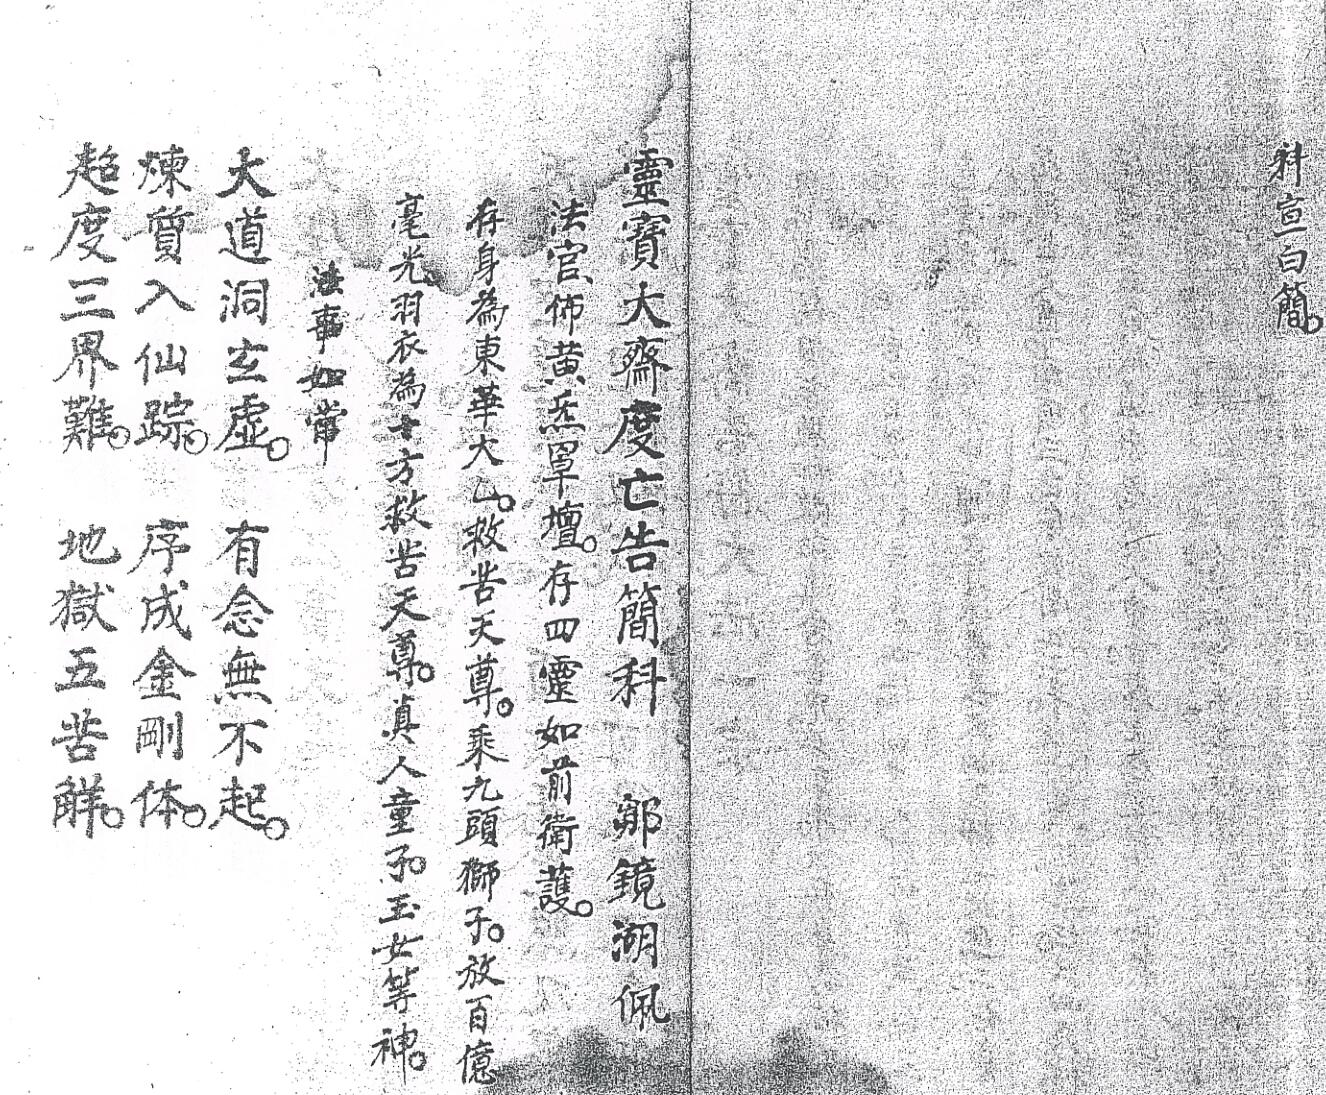 科宣白簡。
靈寶大齋度亡告簡科 鄒鏡湖佩
法官佈黃炁罩壇。存四靈如前衛護。
存身為東華大山。救苦天尊。乘九頭獅子。放百億
毫光羽衣為十方救苦天尊。真人童子。玉女等神。
法事如常
大道洞玄虛。 有念無不起。
煉質入仙踪。 序成金剛体。
超度三界難。 地獄五苦解。